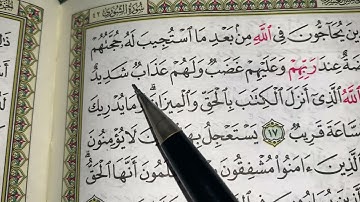 ٤٢ سُورَةُ الشُّورَىٰ
يُحَاجُّونَ فِى ٱللَّهِ مِنۢ بَعْدِ مَا ٱسْتُجِيبَ لَهُۥ حُجَّتُهُمْ
عِندَ رَبِّهِمْ وَعَلَيْهِمْ غَضَبٌ وَلَهُمْ عَذَابٌ شَدِيدٌ
ٱللَّهُ ٱلَّذِىٓ أَنزَلَ ٱلْكِتَٰبَ بِٱلْحَقِّ وَٱلْمِيزَانَ وَمَا يُدْرِيكَ
قَرِيبٌ ١٧ يَسْتَعْجِلُ بِهَا ٱلَّذِينَ لَا يُؤْمِنُونَ
ءَامَنُوا۟ مُشْفِقُونَ مِنْهَا وَيَعْلَمُونَ أَنَّهَا ٱلْحَقُّ